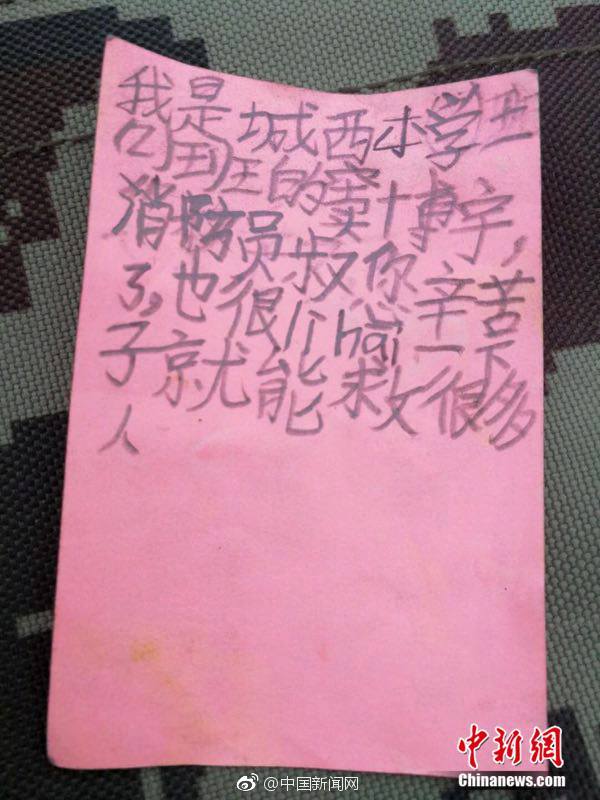 我是城西小学
班的窦博宇,
消防员叔你辛苦
了,也很历hai一下
子就能救很多
人
@中国新闻网
中新网
Chinanews.com